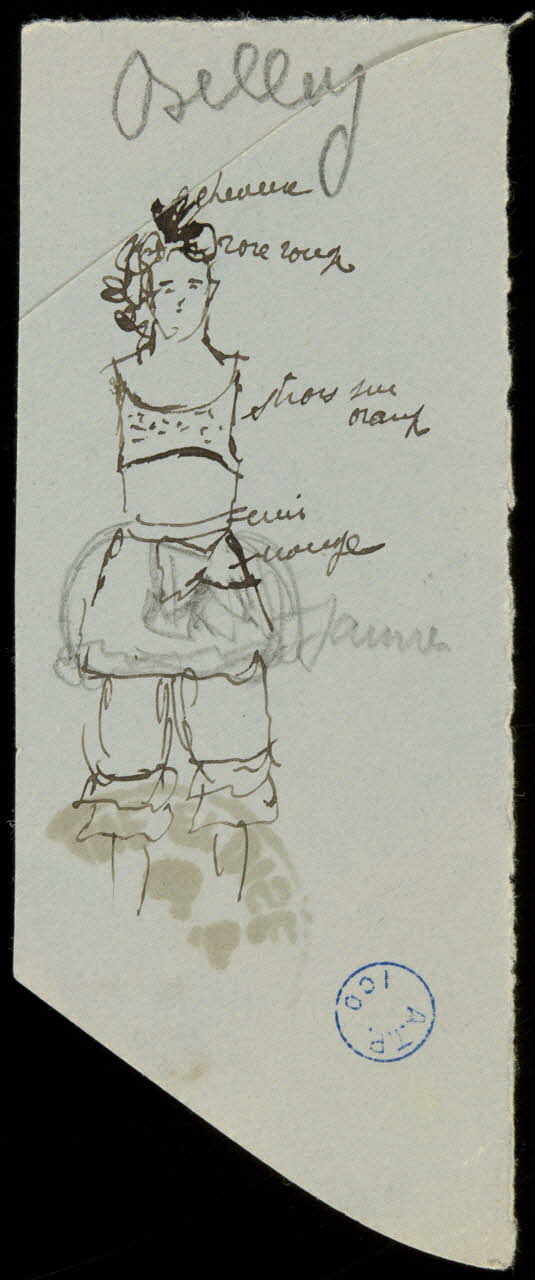 cheveux
rose rouge
strass sur
orange
cuir
rouge
Jaune
A.T.P.
ICO